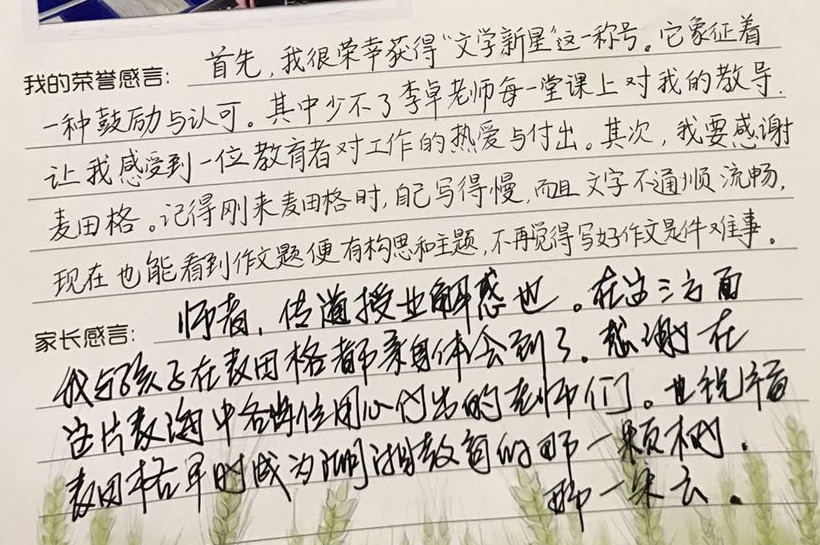 我的荣誉感言：首先，我很荣幸获得“文学新星”这一称号。它象征着
一种鼓励与认可。其中少不了李卓老师每一堂课上对我的教导，
让我感受到一位教育者对工作的热爱与付出。其次，我要感谢
麦田格。记得刚来麦田格时，自己写得慢，而且文字不通顺流畅，
现在也能看到作文题便有构思和主题，不再觉得写好作文是件难事。
家长感言：师者，传道授业解惑也。在这三方面
我与孩子在麦田格都亲身体会到了。感谢在
这片麦海中各岗位用心付出的老师们。也祝福
麦田格早时成为湖湘教育的那一颗树，
那一朵云。